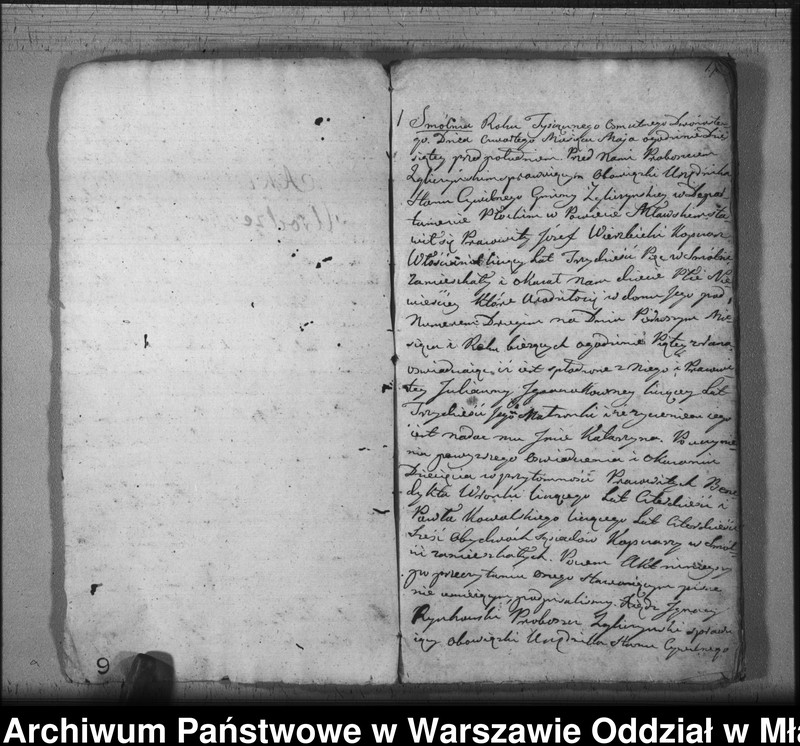 1 Smólnia Roku Tysiącznego Osmsetnego Dwónaste
go. Dnia Czwartego Miesiąca Maja o godzinie Dzie
siątey przed południem Przed Nami Proboszczem
sprawuiącym Obowiązki Urzędnika
Stanu Cywilnego Gminy w Depar
tamencie Płockim w Powiecie Mławskim sta
wił się Prawowity Józef Wierzbicki
Włościanin liczący lat Trzydzieści Pięć w Smólni
zamieszkały i okazał nam dziecie Płci Nie
wieściey które Urodziło się w domu Jego pod
Numerem Drugim na Dniu Pierwszym Mie
siąca i Roku bieżących o godzinie Piątey z rana
oswiadczaiąc, iż iest spłodzone z Niego i Prawowi
tey Julianny liczącey lat
Trzydzieści Jego Małżonki i że życzeniem iego
iest nadać mu Imie Katarzyna. Po uczynie
niu powyższego Oswiadczenia i Okazaniu
Dziecięcia w przytomności Prawowitych Bene
dykta liczącego lat Czterdzieści i
Pawła Kowalskiego liczącego lat Czterdzieści
Sześć Obydwóch Sąsiadów w Smól
ni zamieszkałych. Poczem Akt ninieyszy
po przeczytaniu onego stawaiącym pisać
nie umieiącym, podpisaliśmy. Xiądz Ignacy
Rynkowski Proboszcz sprawu
iący obowiązki Urzędnika Stanu Cywilnego
9
Archiwum Państwowe w Warszawie Oddział w Mła